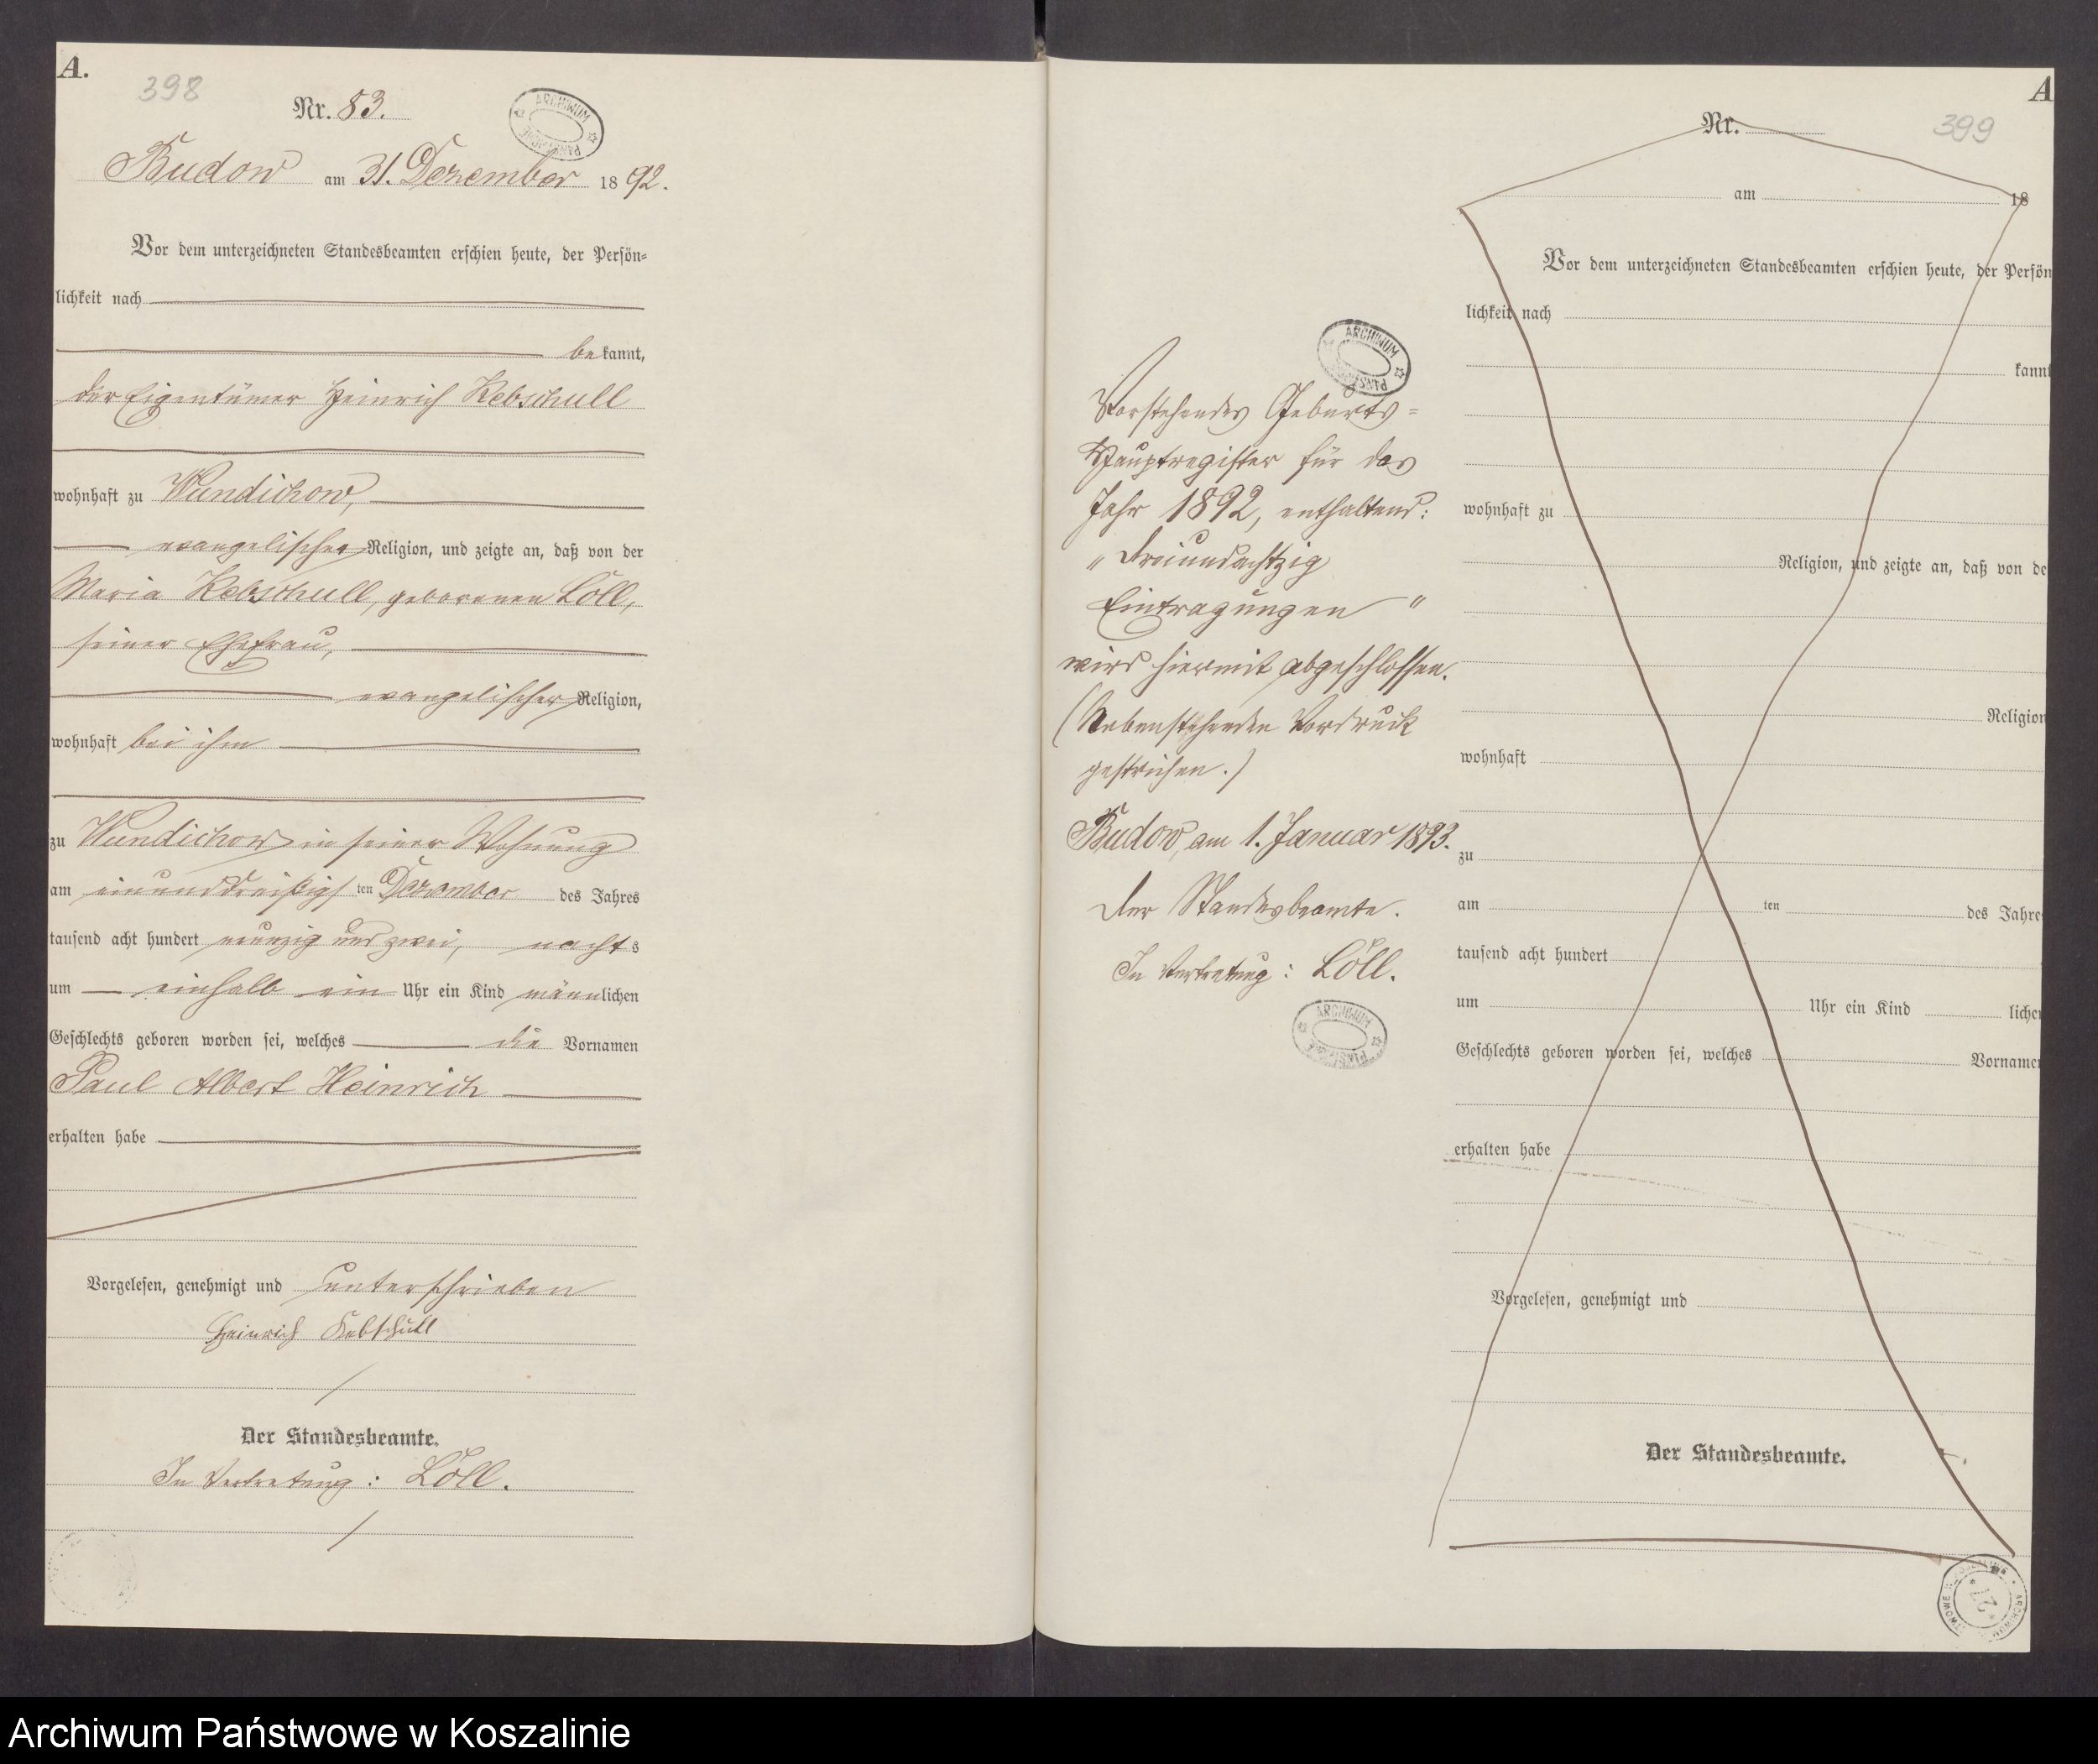 A.
398
Nr. 83.
ARCHIWUM
Budow am 31. Dezember 1892.
Vor dem unterzeichneten Standesbeamten erschien heute, der Persön-
lichkeit nach
bekannt,
der Eigentümer Heinrich Kebschull
wohnhaft zu Wundichow,
evangelischer Religion, und zeigte an, daß von der
Maria Kebschull, geborenen Löll,
seiner Ehefrau,
evangelischer Religion,
wohnhaft bei ihm
zu Wundichow in seiner Wohnung
am einunddreißigsten Dezember des Jahres
tausend acht hundert neunzig und zwei, nachts
um einhalb ein Uhr ein Kind männlichen
Geschlechts geboren worden sei, welches die Vornamen
Paul Albert Heinrich
erhalten habe
Vorgelesen, genehmigt und unterschrieben
Heinrich Kebschull
Der Standesbeamte.
In Vertretung: Löll.
ARCHIWUM
Vorstehendes Geburts-
Hauptregister für das
Jahr 1892, enthaltend:
„Dreiundachtzig
Eintragungen"
wird hiermit abgeschlossen.
(Nebenstehenden Vordruck
gestrichen.)
Budow, am 1. Januar 1893.
Der Standesbeamte.
In Vertretung: Löll.
ARCHIWUM
A
399
Nr.
am 18
Vor dem unterzeichneten Standesbeamten erschien heute, der Persön
lichkeit nach
kannt
wohnhaft zu
Religion, und zeigte an, daß von de
Religion
wohnhaft
zu
am ten des Jahre
tausend acht hundert
um Uhr ein Kind lichen
Geschlechts geboren worden sei, welches Vornamen
erhalten habe
Vorgelesen, genehmigt und
Der Standesbeamte.
27
Archiwum Państwowe w Koszalinie